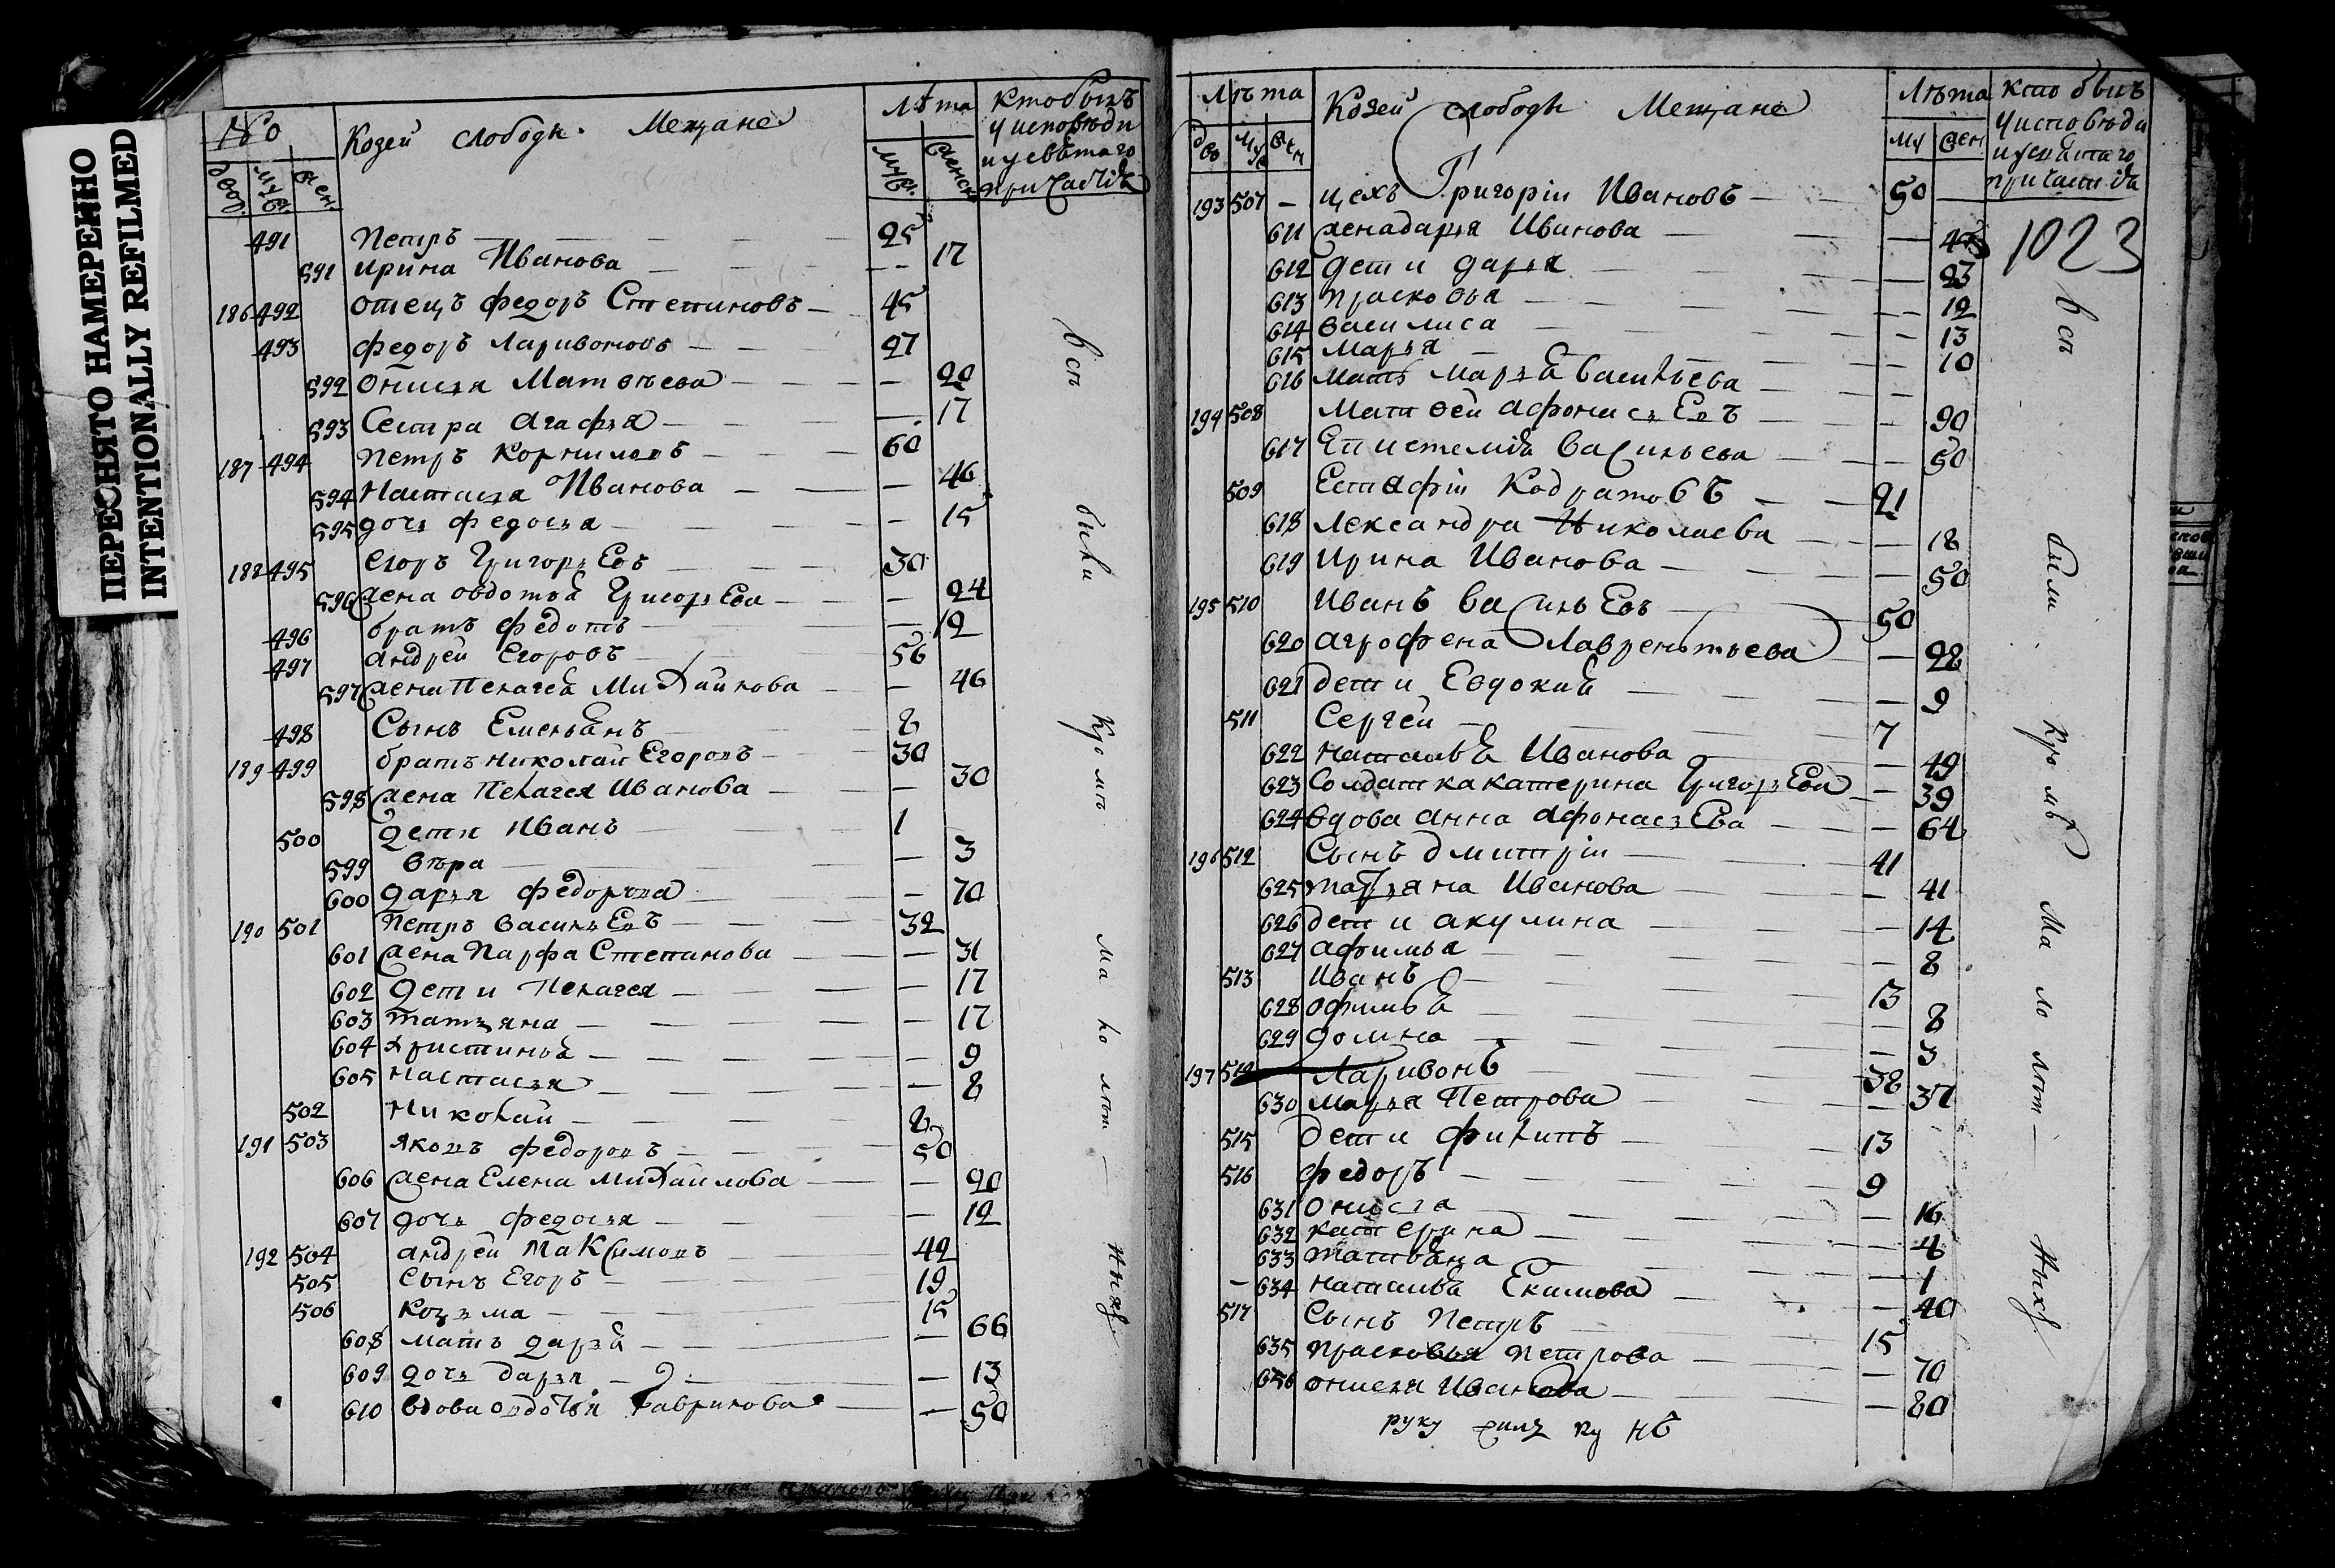 ПЕРЕСНЯТО НАМЕРЕННО
INTENTIONALLY REFILMED
No Козей слободы Мещане Лѣта кто былъ
у исповѣди
и у свѣтаго
причастія
двор. муж. жен. муж. женск
491 Петръ 25
591 ирина Иванова 17
186 492 отецъ федоръ Степиновъ 45
493 федоръ Ларивоновъ 27
592 онисья Матвѣева 20
593 Сестра Агафья 17
187 494 Петръ Корниловъ 60
594 Настасья Иванова 46
595 дочь федосья 15
188 495 Егоръ Григорьевъ 30
596 жена овдотья Григорьева 24
496 братъ федотъ 12
497 андрей Егоровъ 56
597 жена Пелагея Михайлова 46
498 Сынъ Емельянъ 8
189 499 братъ николай Егоровъ 30
598 жена Пелагея Иванова 30
500 дети Иванъ 1
599 вѣра 3
600 дарья федорова 70
190 501 Петръ васильевъ 32
601 жена Марфа Степанова 31
602 дети Пелагея 17
603 татьяна 17
604 христинья 9
605 настасья 8
502 Николай 8
191 503 яковъ федоровъ 50
606 жена Елена Михайлова 20
607 дочь федосья 12
192 504 андрей Максимовъ 42
505 Сынъ Егоръ 19
506 козьма 15
608 мать дарья 66
609 дочь дарья 13
610 вдова овдотья Гаврилова 50
всѣ были Кромѣ малолѣтныхъ
Лѣта Козей слободы Мещане Лѣта кто былъ
у исповѣди
и у святаго
причастія
дво муж жен му жен
193 507 цехъ Григорій Ивановъ 50
1023
611 жена дарья Иванова 45
612 дети дарья 23
613 прасковья 12
614 василиса 13
615 марья 10
616 мать марья васильева 90
194 508 Матвей афонасьевъ
617 Епистемія васильева 50
509 Естафій Кодратовъ 21
618 лександра Николаева 18
619 Ирина Иванова 50
195 510 Иванъ васильевъ 50
620 агрофена Лаврентьева 28
621 дети Евдокия 9
511 Сергей 7
622 наталья Иванова 49
623 Солдатка катерина Григорьева 39
624 вдова анна афонасьева 64
196 512 Сынъ дмитрій 41
625 татьяна Иванова 41
626 дети акулина 14
627 афимья 8
513 Иванъ 13
628 офимья 8
629 домна 3
197 514 Ларивонъ 38
630 марья Петрова 37
515 дети филипъ 13
516 федоръ 9
631 онисья 16
632 катерина 4
633 татьяна 1
634 наталья Екимова 40
517 Сынъ Петръ 15
635 прасковья петрова 70
636 онисья Иванова 80
всѣ были Кромѣ Малолѣтныхъ
руку